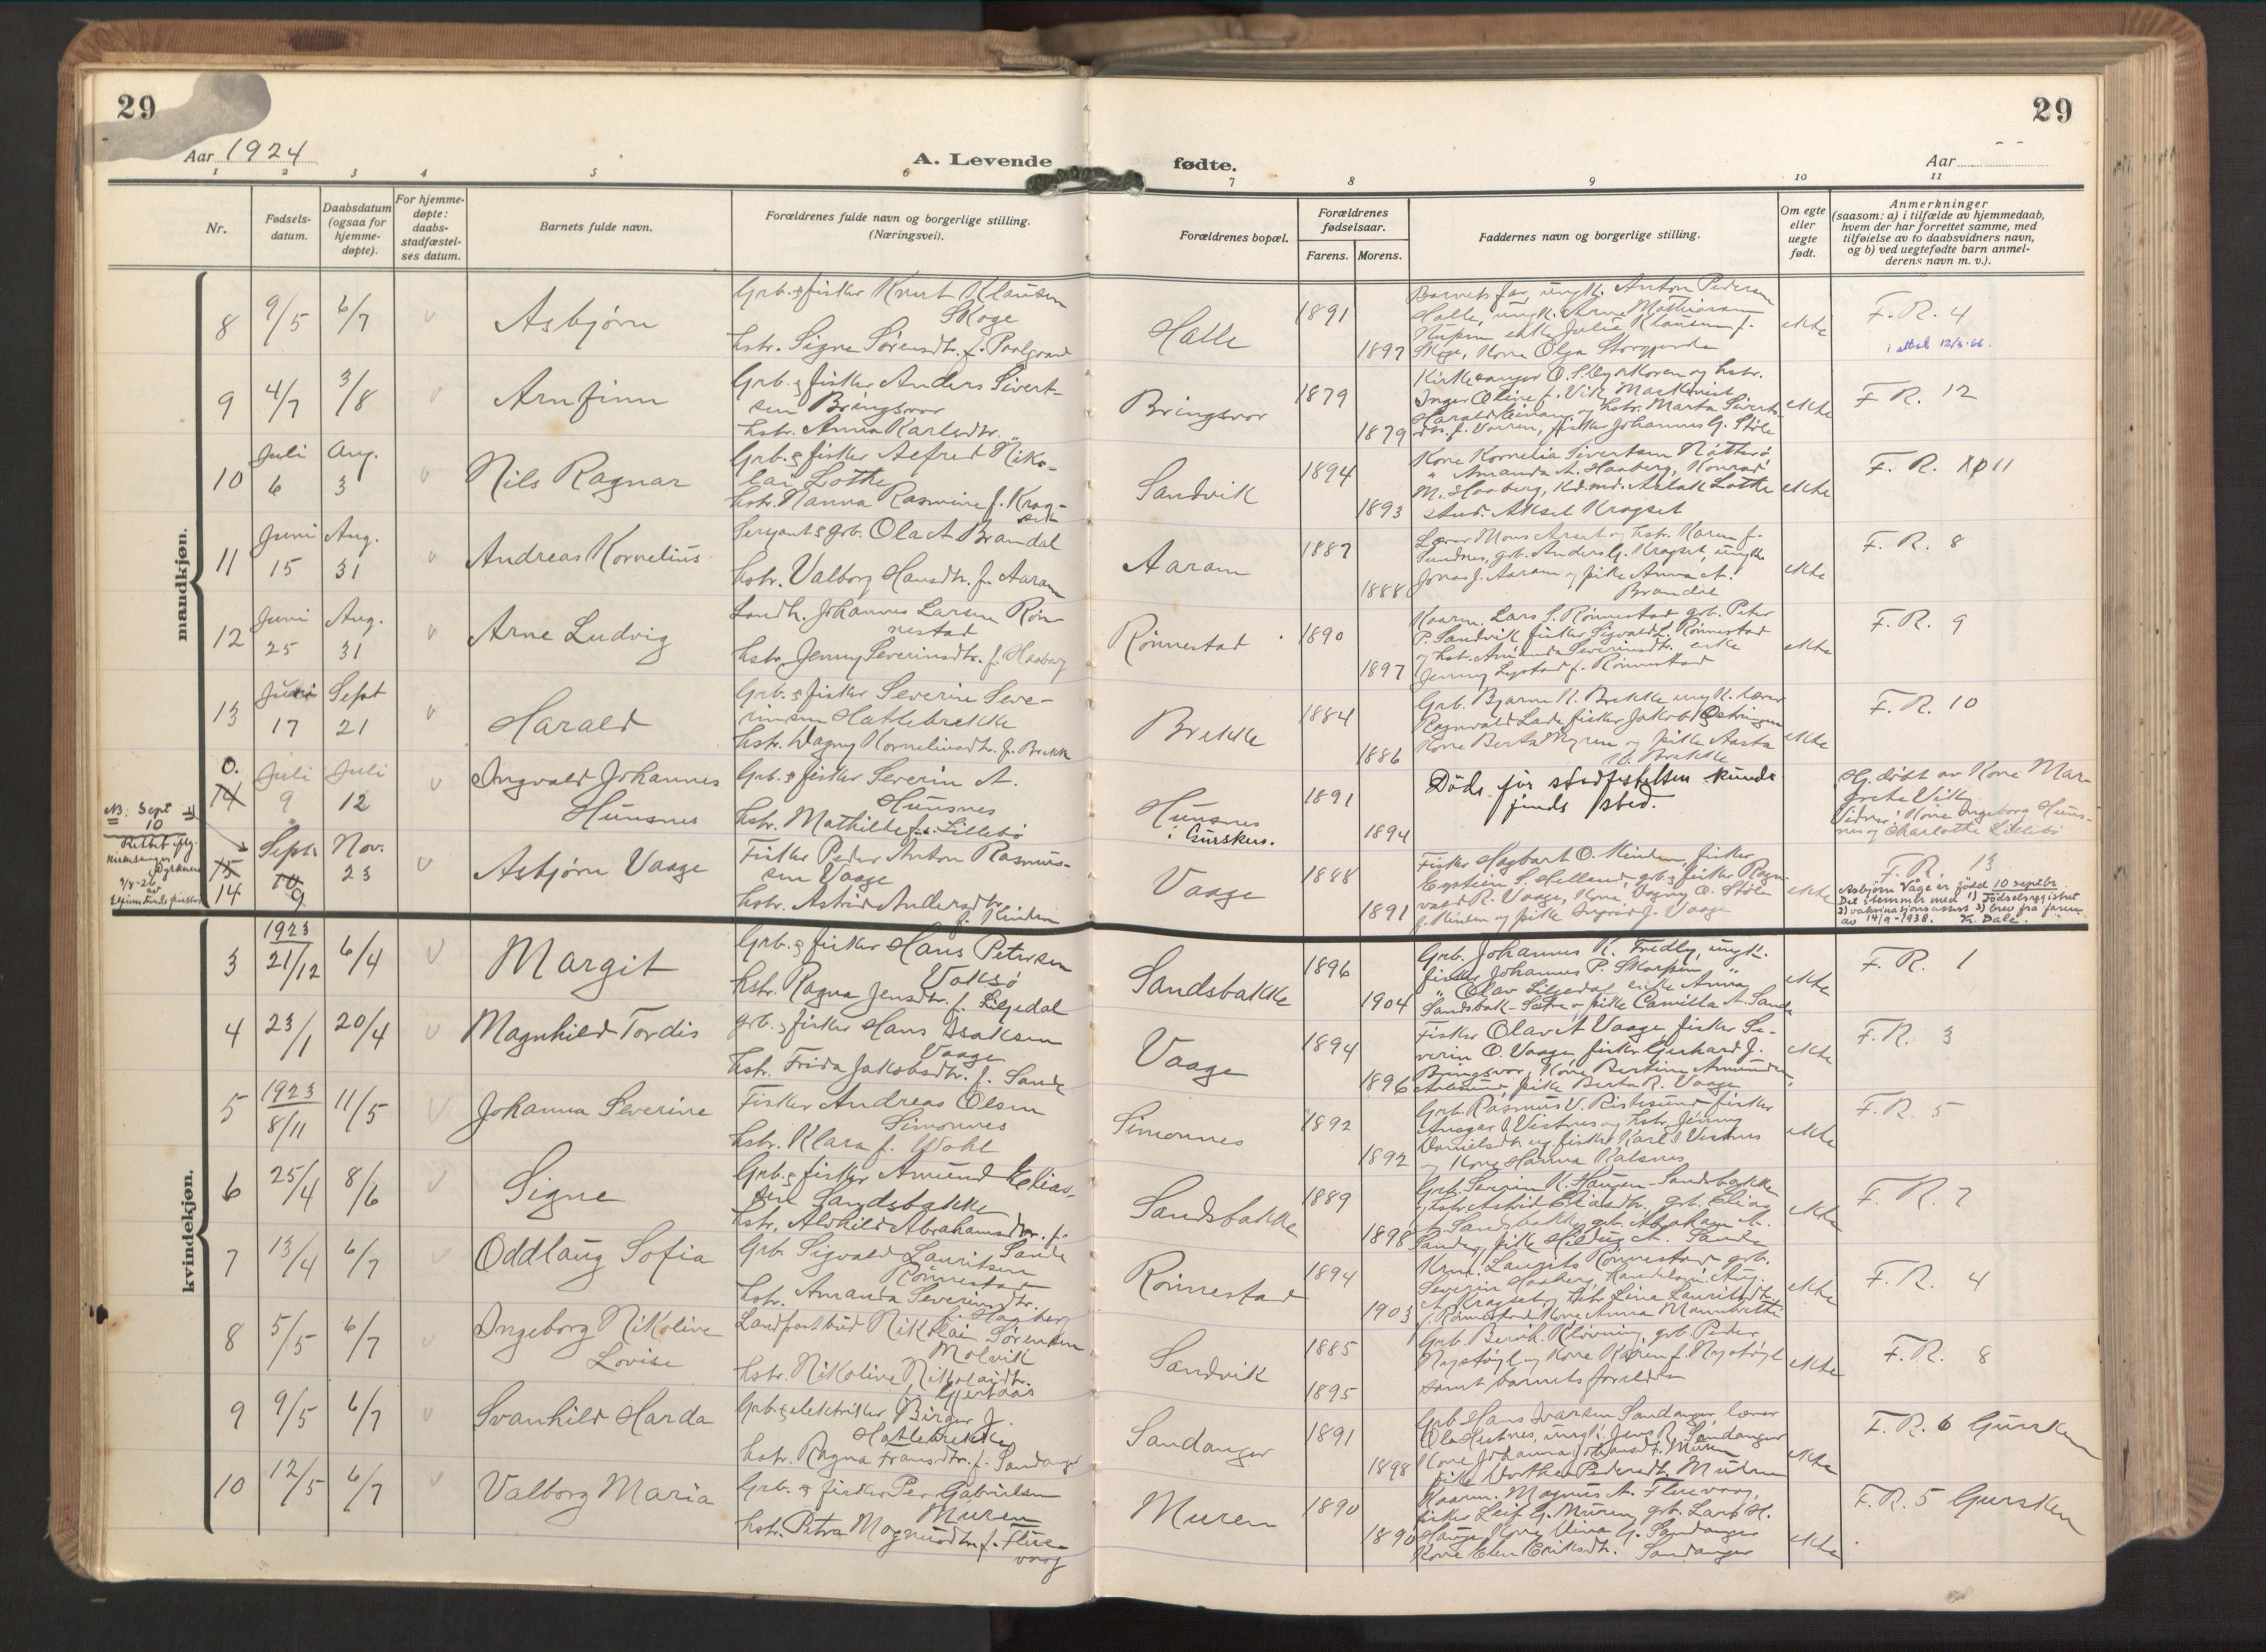 29
Aar 1924
A. Levende
1 2 3 4 5 6
Nr.
Fødsels-
datum.
Daabsdatum
(ogsaa for
hjemme-
døpte).
For hjemme-
døpte:
daabs-
stadfæstel-
ses datum.
Barnets fulde navn.
Forældrenes fulde navn og borgerlige stilling.
(Næringsvei).
29
fødte.
Aar
7 8 9 10 11
Forældrenes bopæl.
Forældrenes
fødselsaar.
Farens. Morens.
Faddernes navn og borgerlige stilling.
Om egte
eller
uegte
født.
Anmerkninger
(saasom: a) i tilfælde av hjemmedaab,
hvem der har forrettet samme, med
tilføielse av to daabsvidners navn,
og b) ved uegtefødte barn anmel-
derens navn m. v.).
mandkjøn.
8 9/5 6/7 Asbjørn
Grb. & fisker Knut Klausen
Skoge
hstr. Signe Sørensdtr. f.
Halle 1891
1897
Barnets far, ungk. Anton Pedersen
Halle, ungk. Arne Mathiassen
enke Julie Klausen f.
Skoge, Kone Olga
ekte
F. R. 4
9 4/7 3/8 Arnfinn
Grb. & fisker Anders Sivert-
sen Bringsvor
hstr. Anna Karlsdtr. "
Bringsvor 1879
1879
Kirkesanger O. S. Dyrkoren og hstr.
Inger Oline f. Vik, Maskinist
Harald og hstr. Marta Siverts-
dtr. f. fisker Johannes G. Støle
ekte
F. R. 12
10 Juli 6 Aug. 3 Nils Ragnar
Grb. & fisker Alfred Niko-
lai Lothe
hstr. Nanna Rasmine f. Krag-
set
Sandvik 1894
1893
Kone Kornelia Sivertsen
" Amanda A. Haaberg, Konrad
M. Haaberg, Aslak Lothe
stud. Aksel Kragset
ekte
F. R. 11
11 Juni 15 Aug. 31 Andreas Kornelius
Sersjant & grb. Ola A Brandal
hstr. Valborg Hansdtr. f. Aaram
Aaram 1887
1888
Lærer Mons Aarset og hstr. Karen f.
grb. Anders G. Kragset, ungk.
Jonas J. Aaram og pike Anna A.
Brandal
ekte
F. R. 8
12 Juni 25 Aug. 31 Arne Ludvig
Landh. Johannes Larsen Røn-
nestad
hstr. Jenny Severinsdtr. f. Haaberg
Rønnestad 1890
1897
Kaarm. Lars S. Rønnestad grb. Peter
P. Sandvik fisker Sigvald L. Rønnestad
og hstr. Amanda Severinsdtr. enke
Jenny f. Rønnestad
ekte
F. R. 9
13 Juni 17 Sept 21 Harald
Grb. & fisker Severin Seve-
rinsen Hatlebrekke
hstr. Dagny Kornelinsdtr. f. Brekke
Brekke 1884
1886
Grb. Bjarne K. Brekke ungk. lærer
Ragnvald Lade fisker Jakob
Kone Berta Myren og pike Aasta
Brekke
ekte
F. R. 10
0. 14 Juli 9 Juli 12 Ingvald Johannes
Hunsnes
Grb. & fisker Severin A.
Hunsnes
hstr. Mathilde f. Lillebø
Hunsnes
i Gursken.
1891
1894
Døde før stadfestelsen kunde
finde sted.
Hj. døbt av Kone Mar-
grete Vik
Vidner: Kone Ingeborg Huns-
nes og Charlotte Lillebø
NB: Sept
10
Rettet
kirkesanger
Dyrkoren
9/8-26
av
15 14 Sept. 10 9 Nov. 23 Asbjørn Vaage
Fisker Peder Anton Rasmus-
sen Vaage
hstr. Astrid Andersdtr.
f. Kinden
Vaage 1888
1891
Fisker Hagbart O. Kinden, fisker
Eystein S. Helland, grb. & fisker Ragn-
vald R. Vaage, Kone Dagny O. Støle
f. Kinden og pike Ingrid J. Vaage
ekte
F. R. 13
Asbjørn Våge er født 10 septbr.
Det stemmer med 1) Fødselsregistret
2) vaksinasjonsattest 3) brev fra faren
av 14/9-1938. K. Dale.
kvindekjøn.
3 1923 21/12 6/4 Margit
Grb. & fisker Hans Petersen
Voksø
hstr. Ragna Jensdtr. f. Liljedal
Sandsbakke 1896
1904
Grb. Johannes K. Fredly, ungk.
fisker Johannes P. Skorpen "
" Olav Liljedal enke Anna
Sandsbak-Sætre og pike Camilla A. Sande
ekte
F. R. 1
4 23/1 20/4 Magnhild Tordis
grb. & fisker Hans Isaksen
Vaage
hstr. Frida Jakobsdtr. f. Sande
Vaage 1894
1896
Fisker Olav A Vaage, fisker Se-
verin O. Vaage fisker Gerhard J.
Bringsvor, Kone Bertine Amundsen,
pike Berta R. Vaage
ekte
F. R. 3
5 1923 8/11 11/5 Johanna Severine
Fisker Andreas Olsen
Simonnes
hstr. Klara f. Wohl
Simonnes 1892
1892
Grb. Rasmus V. Ristesund fisker
Ansgar J. Vestnes og hstr. Jenny
fisker Karl J Vestnes
og Kone Hanna Kalsnes
ekte
F. R. 5
6 25/4 8/6 Signe
Grb. & fisker Amund Elias-
sen Sandsbakke
hstr. Alvhild Abrahamsdtr. f.
Sande
Sandsbakke 1889
1898
Grb. Severin K. Haugen-Sandsbakke
hstr. Astrid Eliasdtr., grb. Elias
A. Sandsbakke grb. Abraham A.
Sande, pike Hildur A. Sande
ekte
F. R. 7
7 13/4 6/7 Oddlaug Sofia
Grb. Sigvald Lauritsen
Rønnestad
hstr. Amanda Severinsdtr.
f. Haaberg
Rønnestad 1894
1903
Laurits Rønnestad grb.
Severin Haaberg, Handelsm. Aug.
A. Kragset og hstr. Lina Lauritsdtr.
f. Rønnestad Kone Anna
ekte
F. R. 4
8 5/5 6/7 Ingeborg Nikoline
Lovise
Landpostbud Nikolai Sørensen
Molvik
hstr. Nikoline Nikolaidtr.
f. Gjerdaas
Sandvik 1885
1895
Grb. Bernh. Kløvning, grb. Peder
Nystøyl og Kone Karen f. Nystøyl
samt barnets forældre
ekte
F. R. 8
9 9/5 6/7 Svanhild Harda
Grb. & elektriker Birger J.
Hatlebrekke
hstr. Ragna Fransdtr. f. Sandanger
Sandanger 1891
1898
Grb. Hans Ivarsen Sandanger, lærer
Ola Hestnes, ungk. Jens R. Sandanger
Kone Johanna Johansdtr. Muren
pike Dorthea Pedersdtr. Muren
ekte
F. R. 6 Gursken
10 12/5 6/7 Valborg Maria
Grb. & fisker Per Gabrielsen
Muren
hstr. Petra Magnusdtr. f. Flue-
vaag
Muren 1890
1890
Kaarm. Magnus A. Fluevaag,
fisker Leif G. Muren, grb. Lars H.
Hauge Kone Olina G. Sandanger
Kone Elen Eriksdtr. Sandanger
ekte
F. R. 5 Gursken